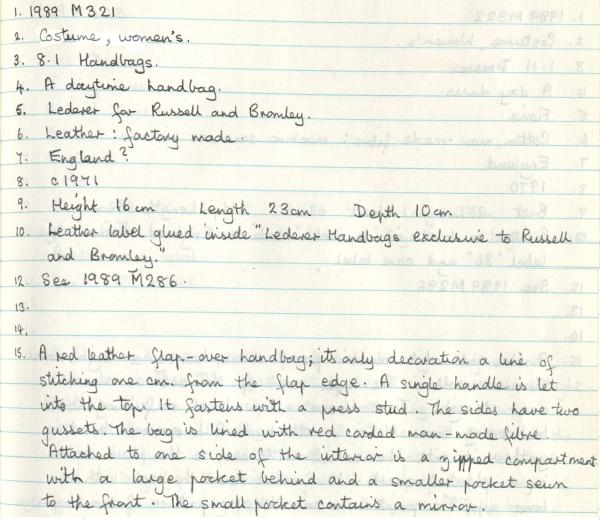 1. 1989 M321
2. Costume, women's.
3. 8.1 Handbags.
4. A daytime handbag.
5. Lederer for Russell and Bromley.
6. Leather : factory made
7. England?
8. c1971
9. Height 16cm Length 23cm Depth 10cm
10. Leather label glued inside "Lederer Handbags exclusive to Russell
and Bromley."
12. See 1989 M286.
13.
14.
15. A red leather flap-over handbag; its only decoration a line of
stitching one cm. from the flap edge. A single handle is let
into the top. It fastens with a press stud. The sides have two
gussets. The bag is lined with red corded man-made fibre.
Attached to one side of the interior is a zipped compartment
with a large pocket behind and a smaller pocket sewn
to the front. The small pocket contains a mirror.